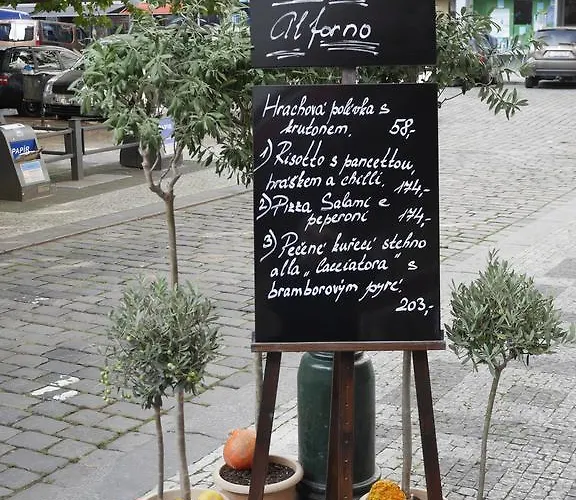 Al forno
Hrachová polévka s
krutonem. 58,-
1) Risotto s pancettou,
hráškem a chilli. 174,-
2) Pizza Salami e
peperoni 174,-
3) Pečené kuřecí stehno
alla „Cacciatora“ s
bramborovým pyré.
203,-
PAPÍR